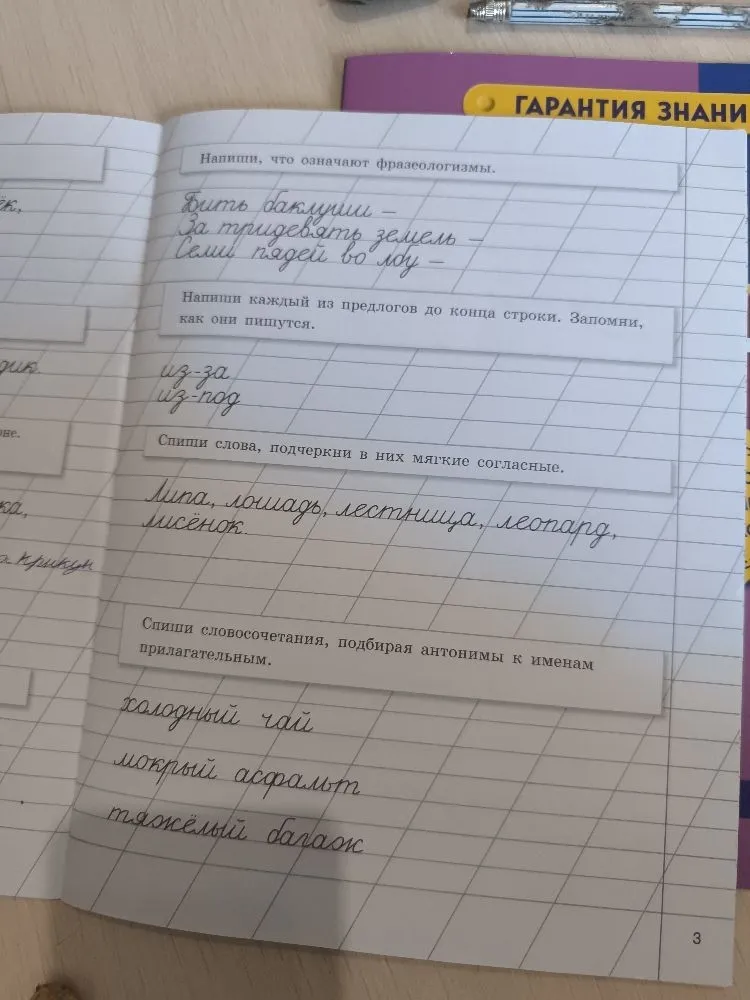 ГАРАНТИЯ ЗНАНИ
Напиши, что означают фразеологизмы.
ёк,
Бить баклуши –
За тридевять земель –
Семи пядей во лбу –
Напиши каждый из предлогов до конца строки. Запомни,
как они пишутся.
дик.
из-за
из-под
оне.
Спиши слова, подчеркни в них мягкие согласные.
ка,
Липа, лошадь, лестница, леопард,
лисёнок.
крикун
Спиши словосочетания, подбирая антонимы к именам
прилагательным.
холодный чай
мокрый асфальт
тяжёлый багаж
3